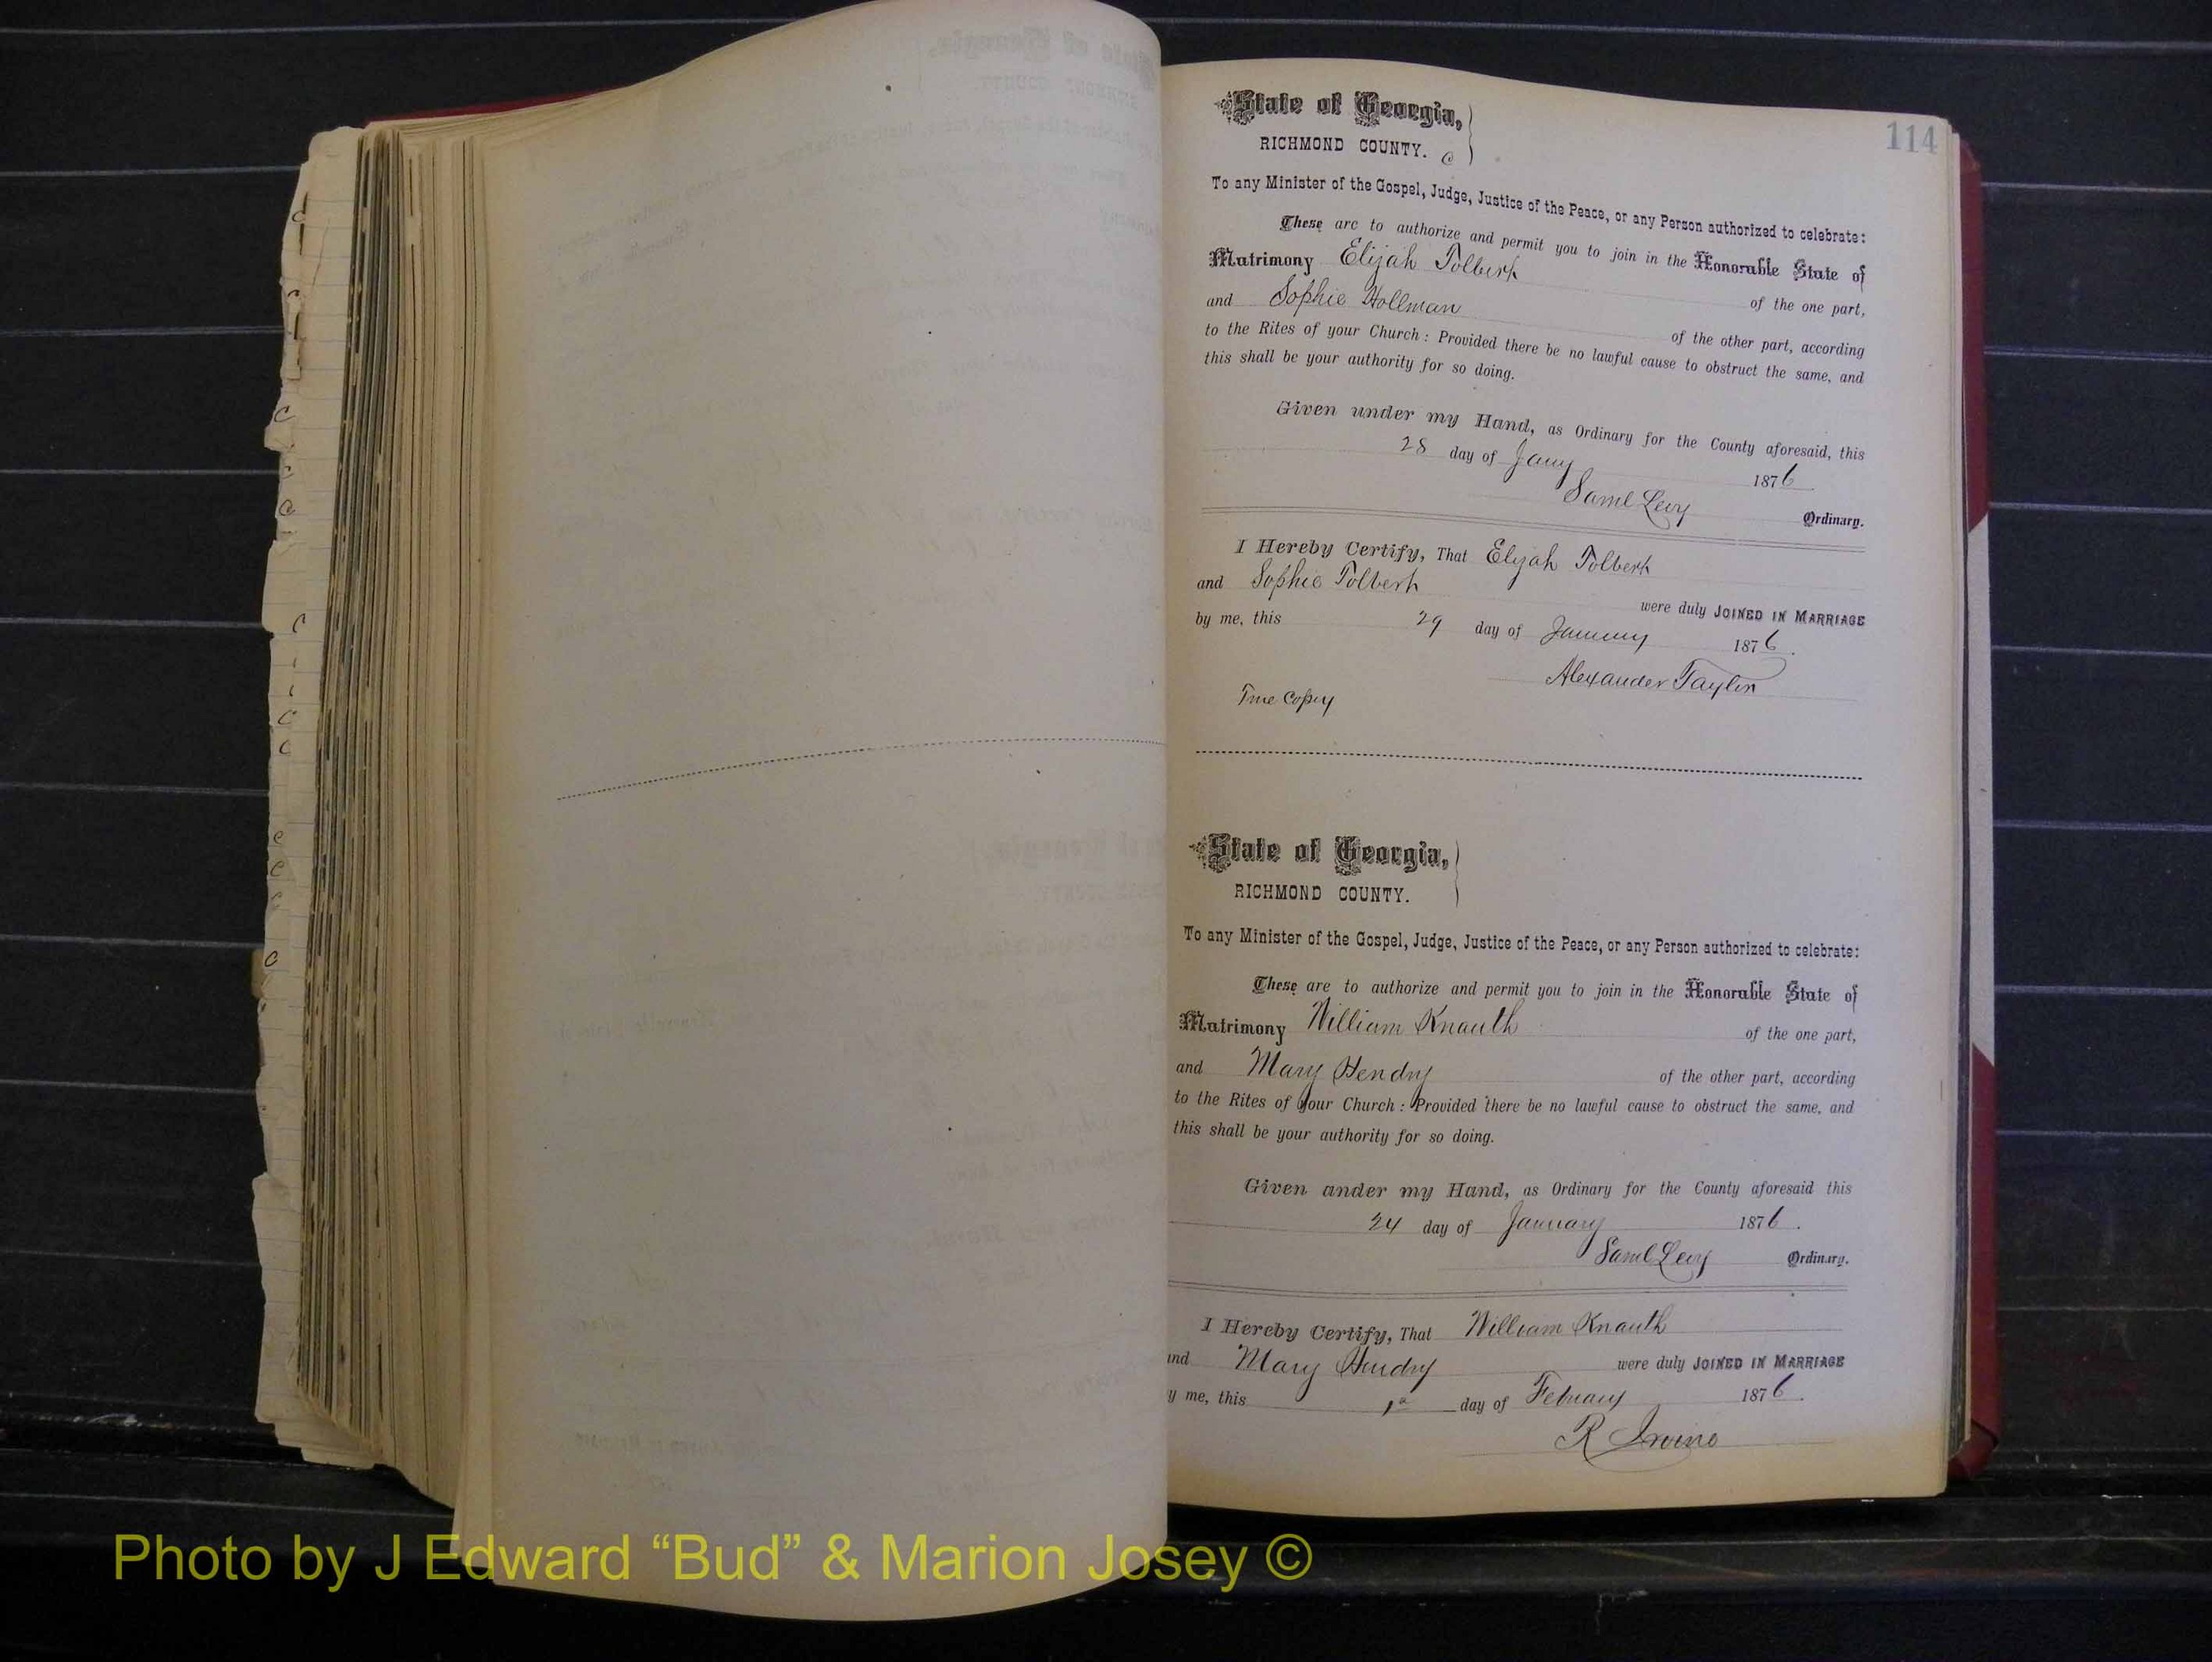 114
State of Georgia,
RICHMOND COUNTY. C
To any Minister of the Gospel, Judge, Justice of the Peace, or any Person authorized to celebrate:
These are to authorize and permit you to join in the Honorable State of
Matrimony Elijah Tolbert of the one part,
and Sophie Hollman of the other part, according
to the Rites of your Church: Provided there be no lawful cause to obstruct the same, and
this shall be your authority for so doing.
Given under my Hand, as Ordinary for the County aforesaid, this
28 day of Jany 1876
Saml Levy Ordinary.
I Hereby Certify, That Elijah Tolbert
and Sophie Tolbert were duly JOINED IN MARRIAGE
by me, this 29 day of January 1876.
Alexander Taylor
True Copy
State of Georgia,
RICHMOND COUNTY.
To any Minister of the Gospel, Judge, Justice of the Peace, or any Person authorized to celebrate:
These are to authorize and permit you to join in the Honorable State of
Matrimony William Knauth of the one part,
and Mary Hendry of the other part, according
to the Rites of your Church: Provided there be no lawful cause to obstruct the same, and
this shall be your authority for so doing.
Given under my Hand, as Ordinary for the County aforesaid this
24 day of January 1876.
Saml Levy Ordinary.
I Hereby Certify, That William Knauth
and Mary Hendry were duly JOINED IN MARRIAGE
y me, this 1st day of February 1876.
R Irvine
Photo by J Edward “Bud” & Marion Josey ©